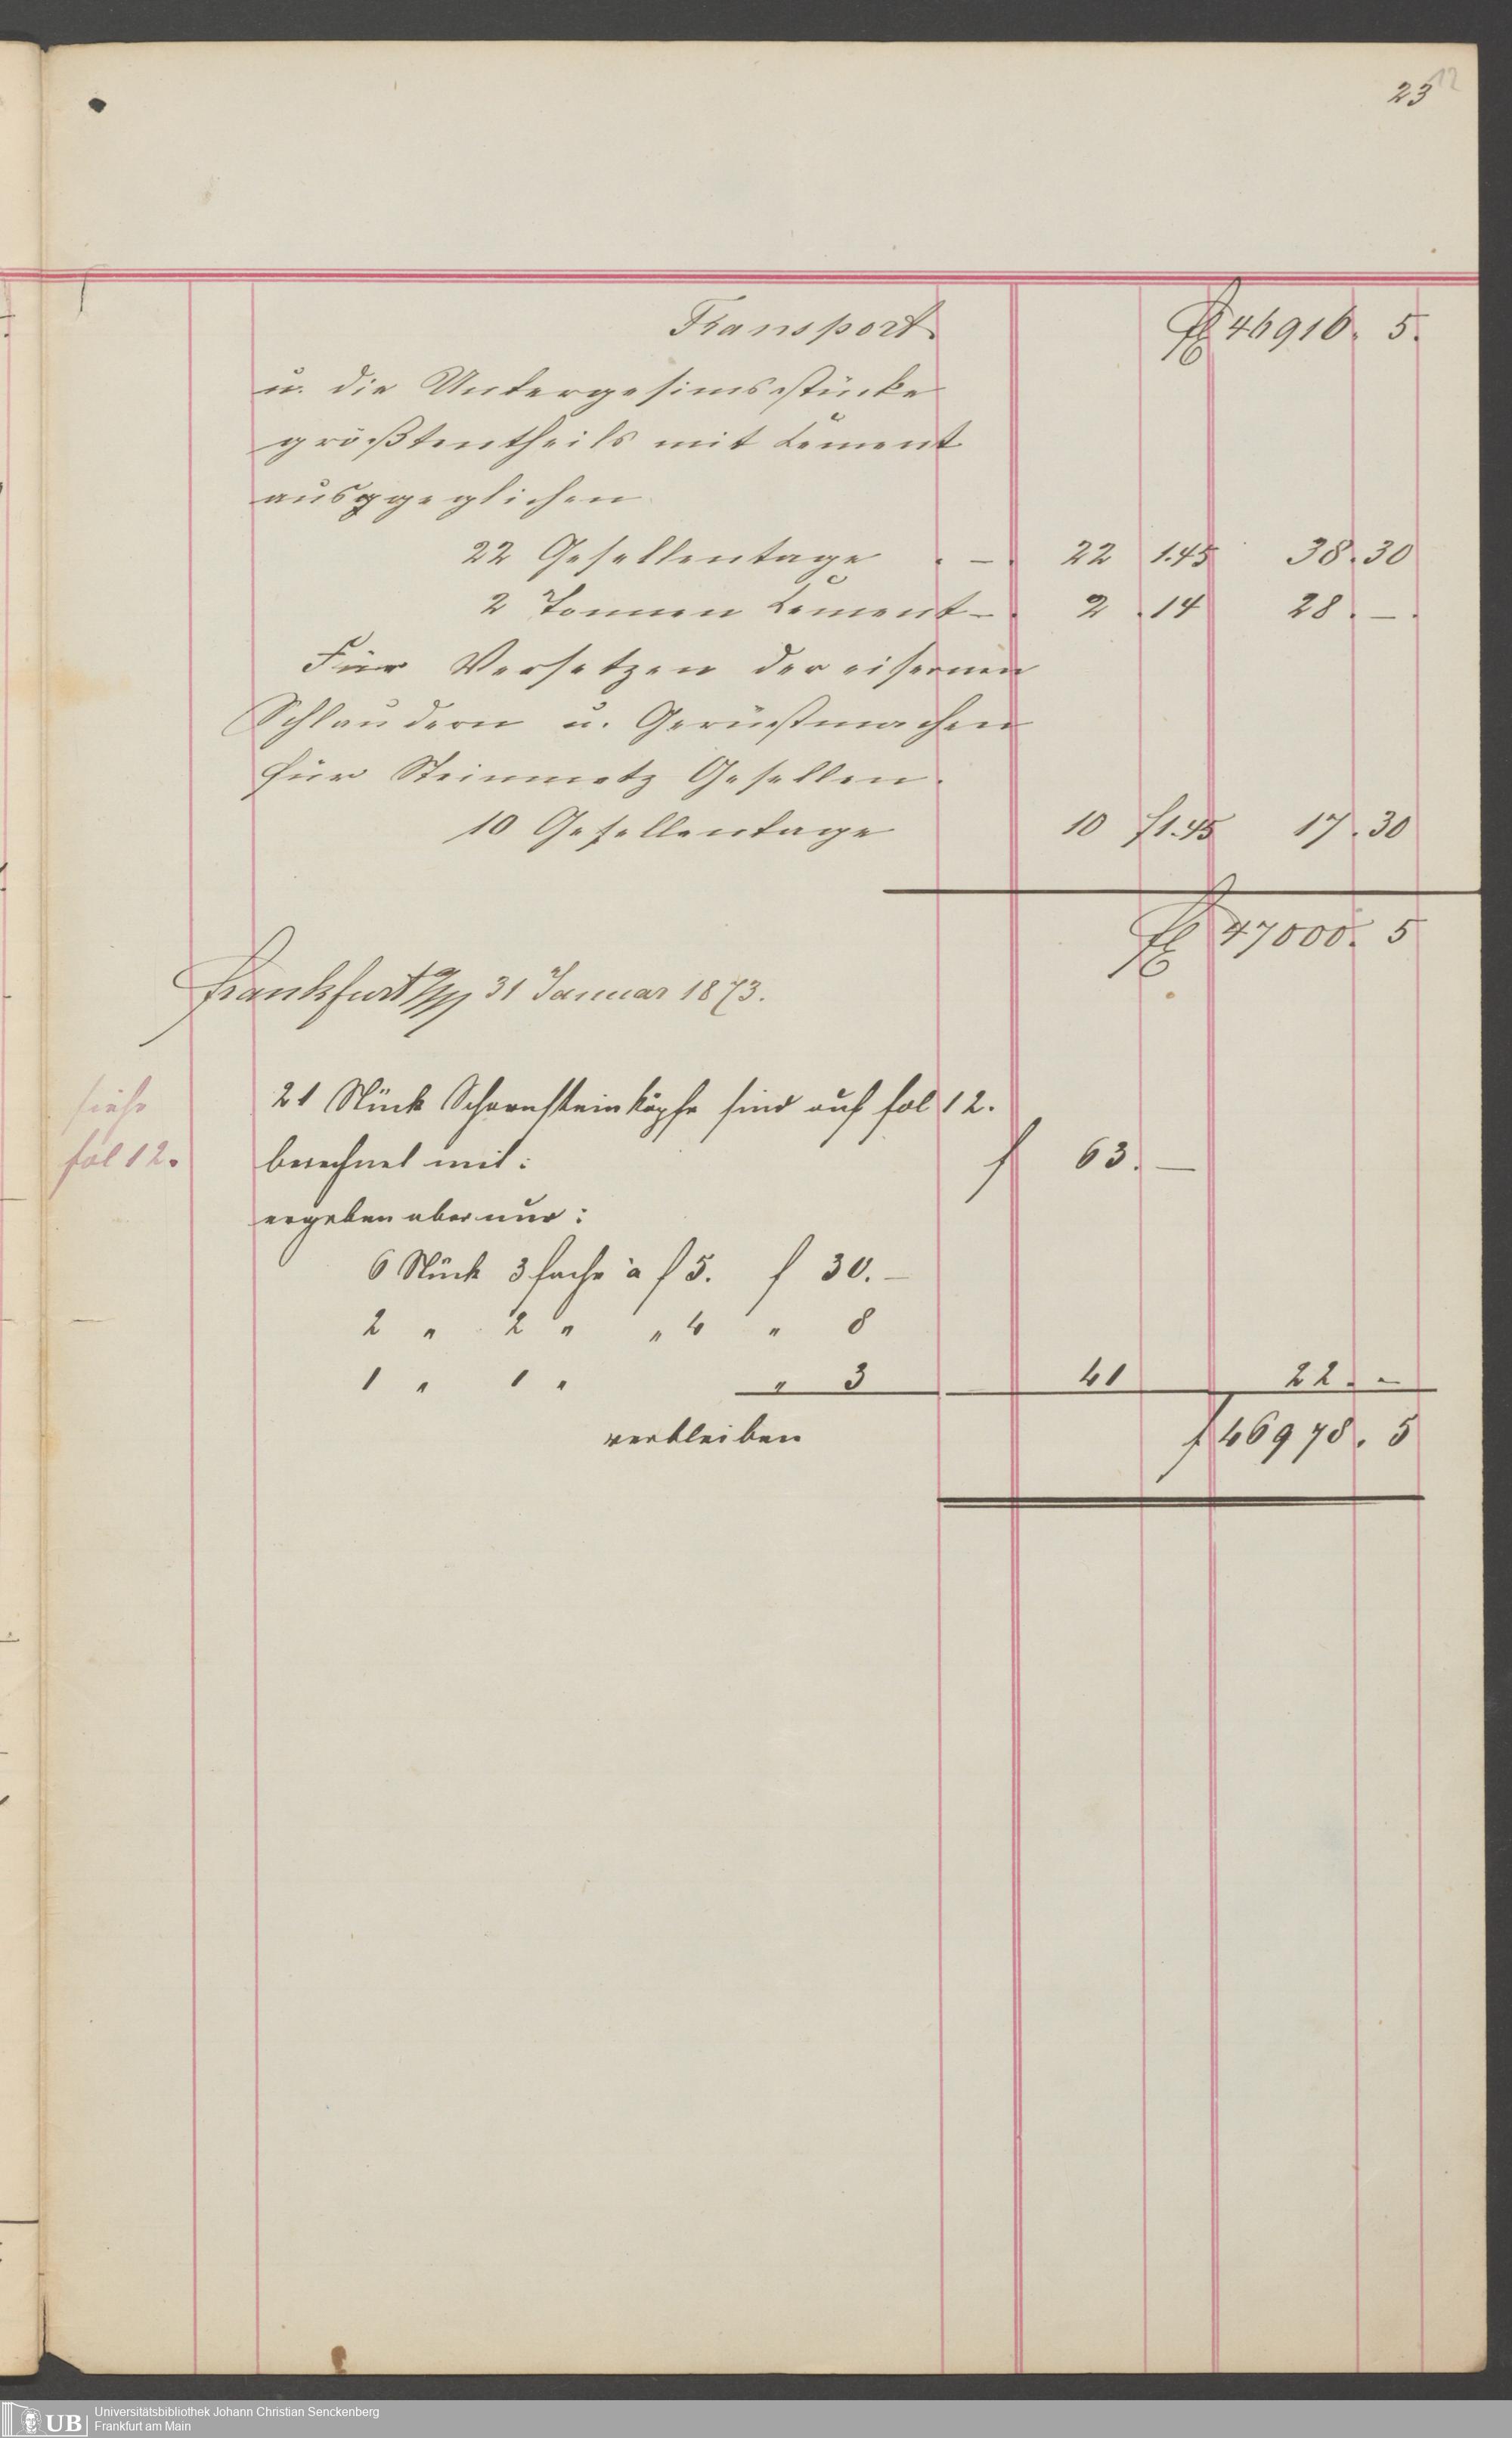 23
12
Transport fl 46916. 5.
u. die Untergesimsstücke
größtentheils mit Cement
ausggeglichen
22 Gesellentage . — 22 1.45 38.30
2 Tonnen Cement — 2 .14 28. —.
Für Versetzen der eisernen
Schlaudern u. Gerüstmachen
für Steinmetz Gesellen.
10 Gesellentage 10 f1.45 17.30
fl 47000. 5
Frankfurt a/M 31 Januar 1873.
siehe
fol 12.
21 Stück Schornsteinköpfe sind auf fol 12.
berechnet mit: f 63. —
ergeben aber nur:
6 Stück 3 fache à f 5. f 30. —
2 " 2 " " 4 " 8
1 " 1 " " 3 41 22. -
verbleiben f 46978. 5
UB
Universitätsbibliothek Johann Christian Senckenberg
Frankfurt am Main